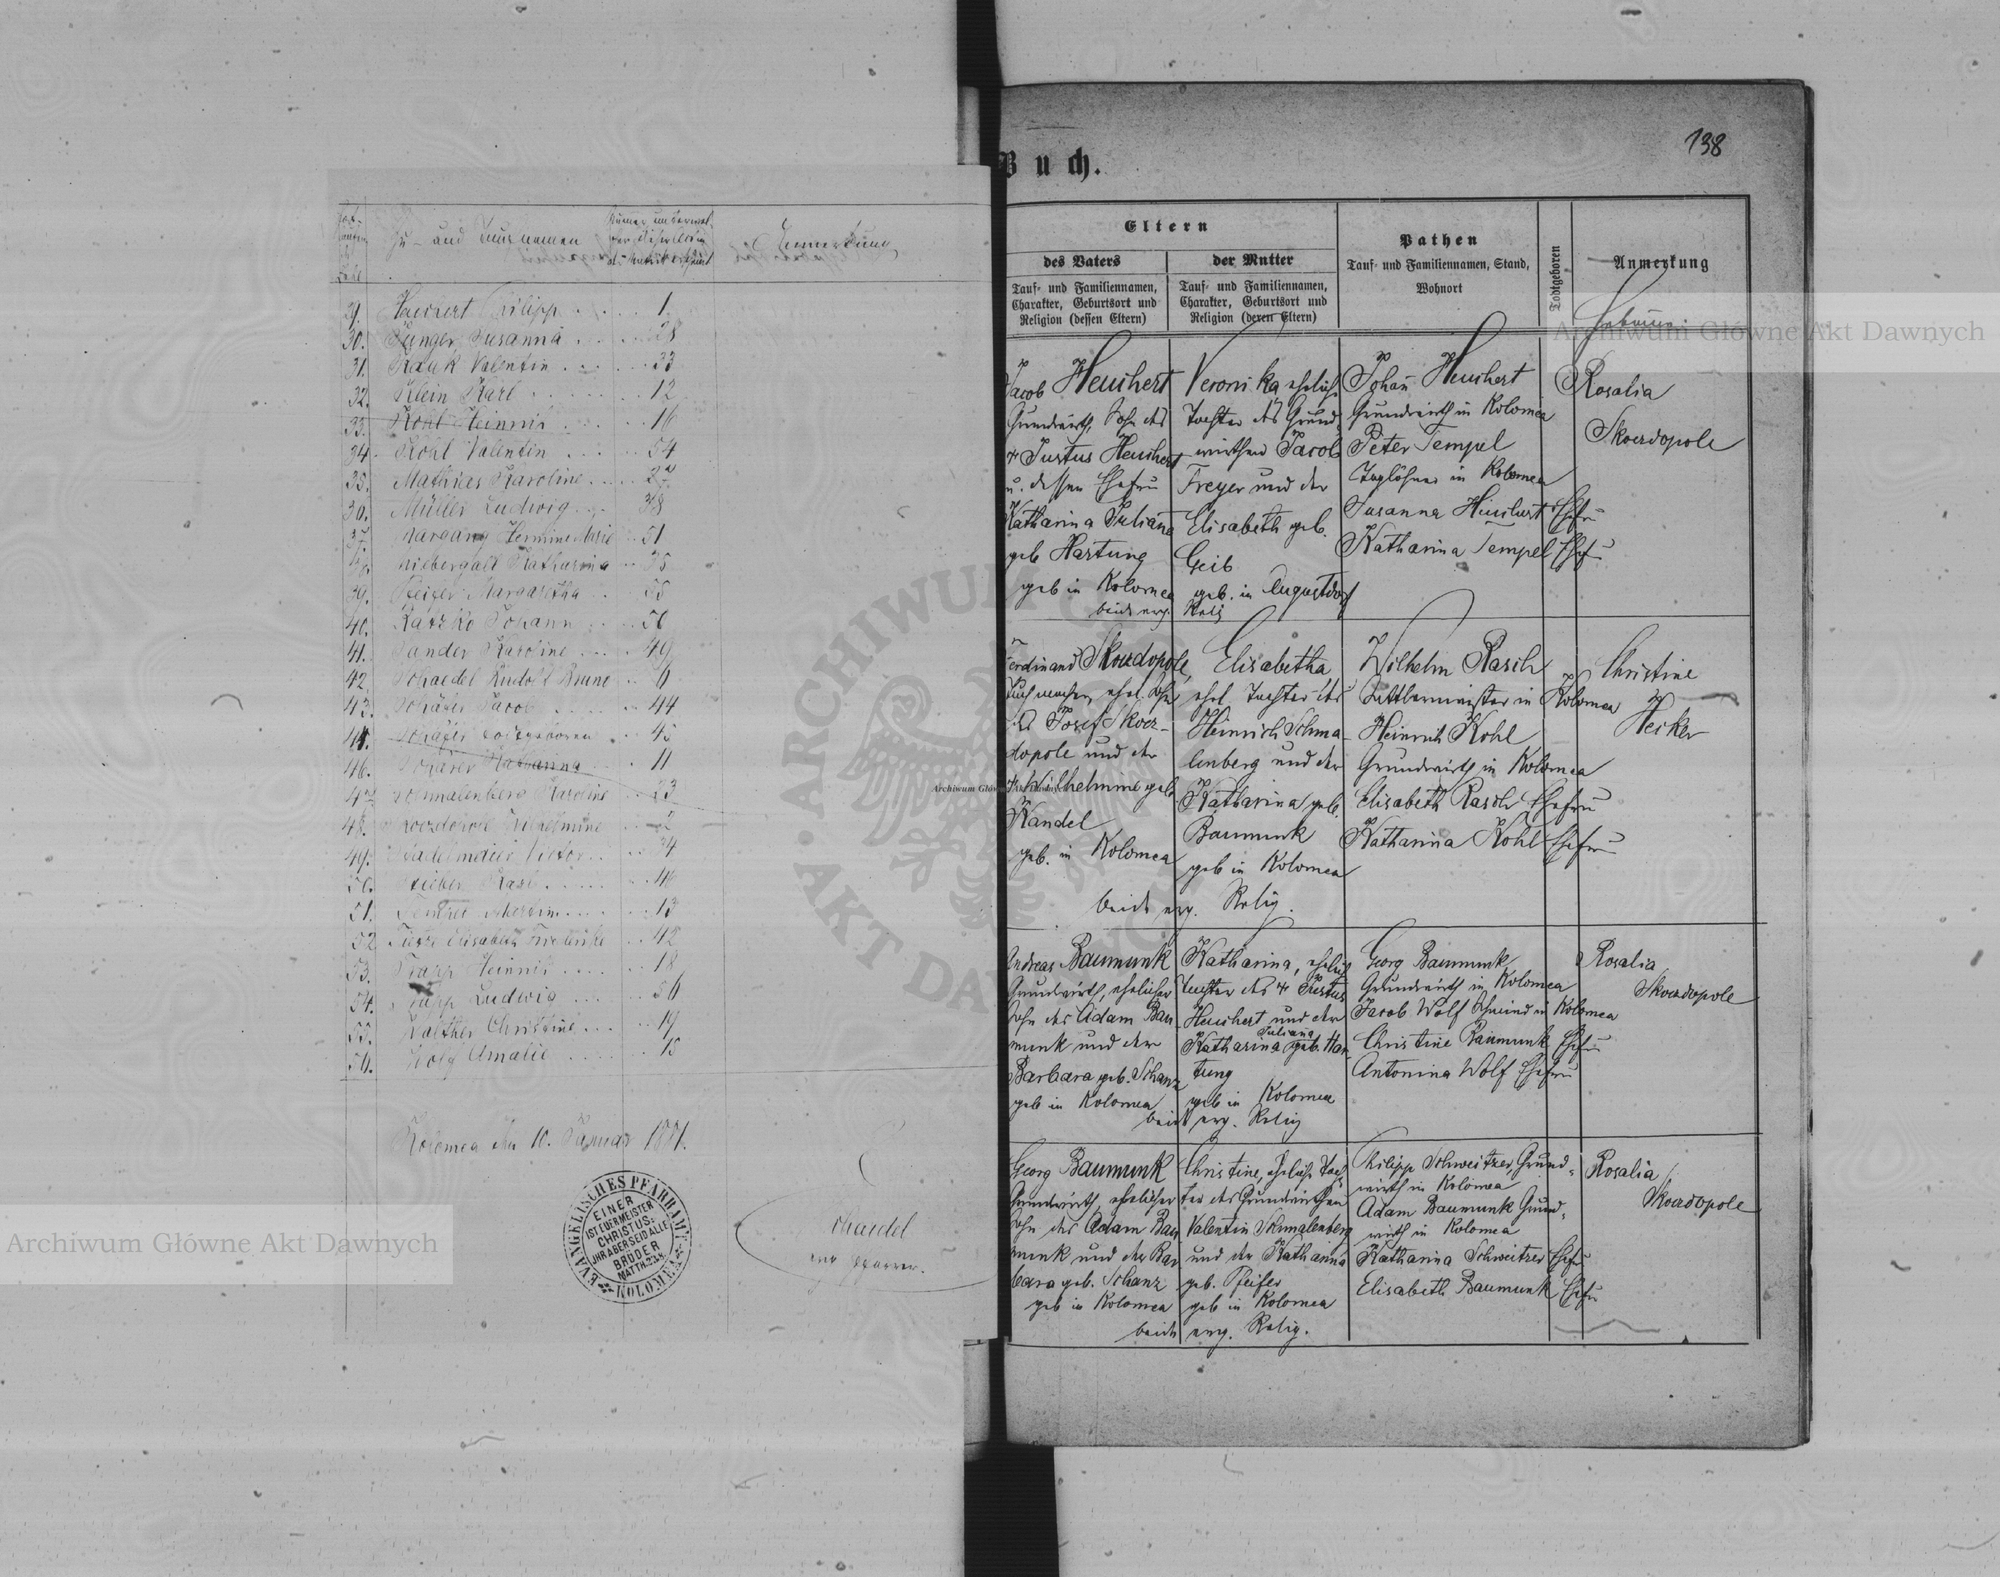 138
Buch.
Zu- und Taufnamen
Anmerkung
29. Heuchert Philipp . . . 1.
30. Junger Susanna . . . 28
31. Kauk Valentin . . . 33
32. Klein Karl . . . 12
33. Kohl Heinrich . . . 16
34. Kohl Valentin . . . 54
35. Mathies Karoline . . . 27
36. Müller Ludwig . . . 38
37. Hermine Marie . . 51
Katharina . . 35
39. Pfeifer Margaretha . . 55
40. Ratzko Johann . . 50
41. Sander Karoline . . . 49
42. Schaedel Rudolf Bruno . . 6
43. Schäfer Jacob . . . 44
Schäfer Todtgeboren . . 45
46. Schäfer . . 11
47. Schmalenberg Karoline . . 23
48. Skoerdopole Wilhelmine . . 2
49. Stadelmeier Victor . . . 34
50. Stieber Karl . . . 46
51. . . . 13
52. Tietze Elisabeth Friederike . . 42
53. Trapp Heinrich . . . 18
54. Trapp Ludwig . . . 56
55. Walther Christine . . . 19
56. Wolf Amalie . . . 15
Kolomea den 10. Januar 1881.
EVANGELISCHES PFARRAMT
KOLOMEA
EINER
IST EUER MEISTER
CHRISTUS.
IHR ABER SEID ALLE
BRÜDER
MATTH.
Schaedel
ev. Pfarrer.
Eltern
des Vaters
Tauf- und Familiennamen,
Charakter, Geburtsort und
Religion (dessen Eltern)
der Mutter
Tauf- und Familiennamen,
Charakter, Geburtsort und
Religion (deren Eltern)
Pathen
Tauf- und Familiennamen, Stand,
Wohnort
Todtgeboren
Anmerkung
Hebamme
Jacob Heuchert
Grundwirth, Sohn des
† Justus Heuchert
u. dessen Ehefrau
Katharina Juliana
geb Hartung
geb in Kolomea
Veronika, ehelich.
Tochter des Grund-
wirthen Jacob
Freyer und der
Elisabeth geb.
Geib
geb. in Augustdorf
beide evg. Relig
Johann Heuchert
Grundwirth in Kolomea
Peter Tempel
Taglöhner in Kolomea
Susanna Heuchert Ehefrau
Katharina Tempel Ehefrau
Rosalia
Skoerdopole
Ferdinand Skoerdopole,
Tuchmacher, ehel. Sohn
des Josef Skoer-
dopole und der
† Wilhelmine geb
Kandel
geb. in Kolomea
Elisabetha
ehel Tochter des
Heinrich Schma-
lenberg und der
Katharina geb.
Baumunk
geb in Kolomea
beide evg. Relig.
Wilhelm Rasch
Sattlermeister in Kolomea
Heinrich Kohl
Grundwirth in Kolomea
Elisabeth Rasch Ehefrau
Katharina Kohl Ehefrau
Christine
Hecker
Andreas Baumunk
Grundwirth, ehelicher
Sohn des Adam Bau-
munk und der
Barbara geb. Schanz
geb in Kolomea
Katharina, ehelich
Tochter des † Justus
Heuchert und der
Juliana
Katharina geb. Har-
tung
geb in Kolomea
beide evg. Relig
Georg Baumunk
Grundwirth in Kolomea
Jacob Wolf Schmied in Kolomea
Christine Baumunk Ehefrau
Antonina Wolf Ehefrau
Rosalia
Skoerdopole
Georg Baumunk
Grundwirth, ehelicher
Sohn des Adam Bau-
munk und der Bar-
bara geb. Schanz
geb in Kolomea
Christine, eheliche Toch-
ter des Grundwirthen
Valentin Schmalenberg
und der Katharina
geb. Pfeifer
geb in Kolomea
beide evg. Relig.
Philipp Schweitzer, Grund-
wirth in Kolomea
Adam Baumunk Grund-
wirth in Kolomea
Katharina Schweitzer Ehefrau
Elisabeth Baumunk Ehefrau
Rosalia
Skoerdopole
Archiwum Główne Akt Dawnych
Archiwum Główne Akt Dawnych
ARCHIWUM GŁÓWNE AKT DAWNYCH